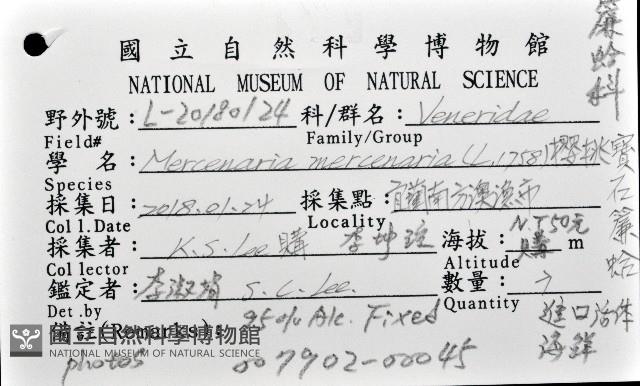 簾蛤科
國立自然科學博物館
NATIONAL MUSEUM OF NATURAL SCIENCE
野外號：L-20180124 科/群名：Veneridae
Field# Family/Group
學 名：Mercenaria mercenaria (L, 1758) 櫻桃寶石簾蛤
Species
採集日：2018.01.24 採集點：宜蘭南方澳漁市
Col l.Date Locality
N.T 50元
採集者：K.S. Lee 購 李坤瑄 海拔：購 m
Col lector Altitude
鑑定者：李淑 S.C. Lee. 數量：7
Det .by Quantity
備註(Remarks)： 95% Alc. Fixed 進口活体海鮮
國立自然科學博物館
NATIONAL MUSEUM OF NATURAL SCIENCE
photos 007902-00045